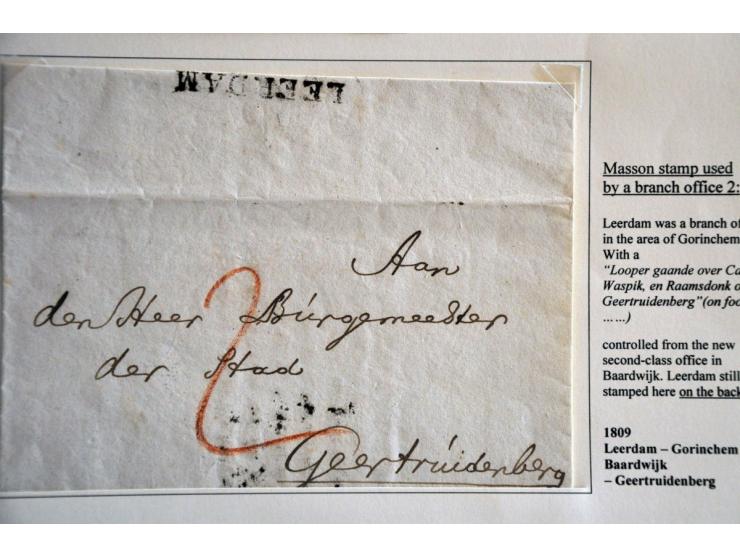 LEERDAM
Aan
den Heer Burgemeester
der Stad
Geertruidenberg
2
Masson stamp used
by a branch office 2:
Leerdam was a branch of
in the area of Gorinchem
With a
"Looper gaande over Ca
Waspik, en Raamsdonk o
Geertruidenberg"(on foo
... ...)
controlled from the new
second-class office in
Baardwijk. Leerdam still
stamped here on the back
1809
Leerdam – Gorinchem
Baardwijk
– Geertruidenberg